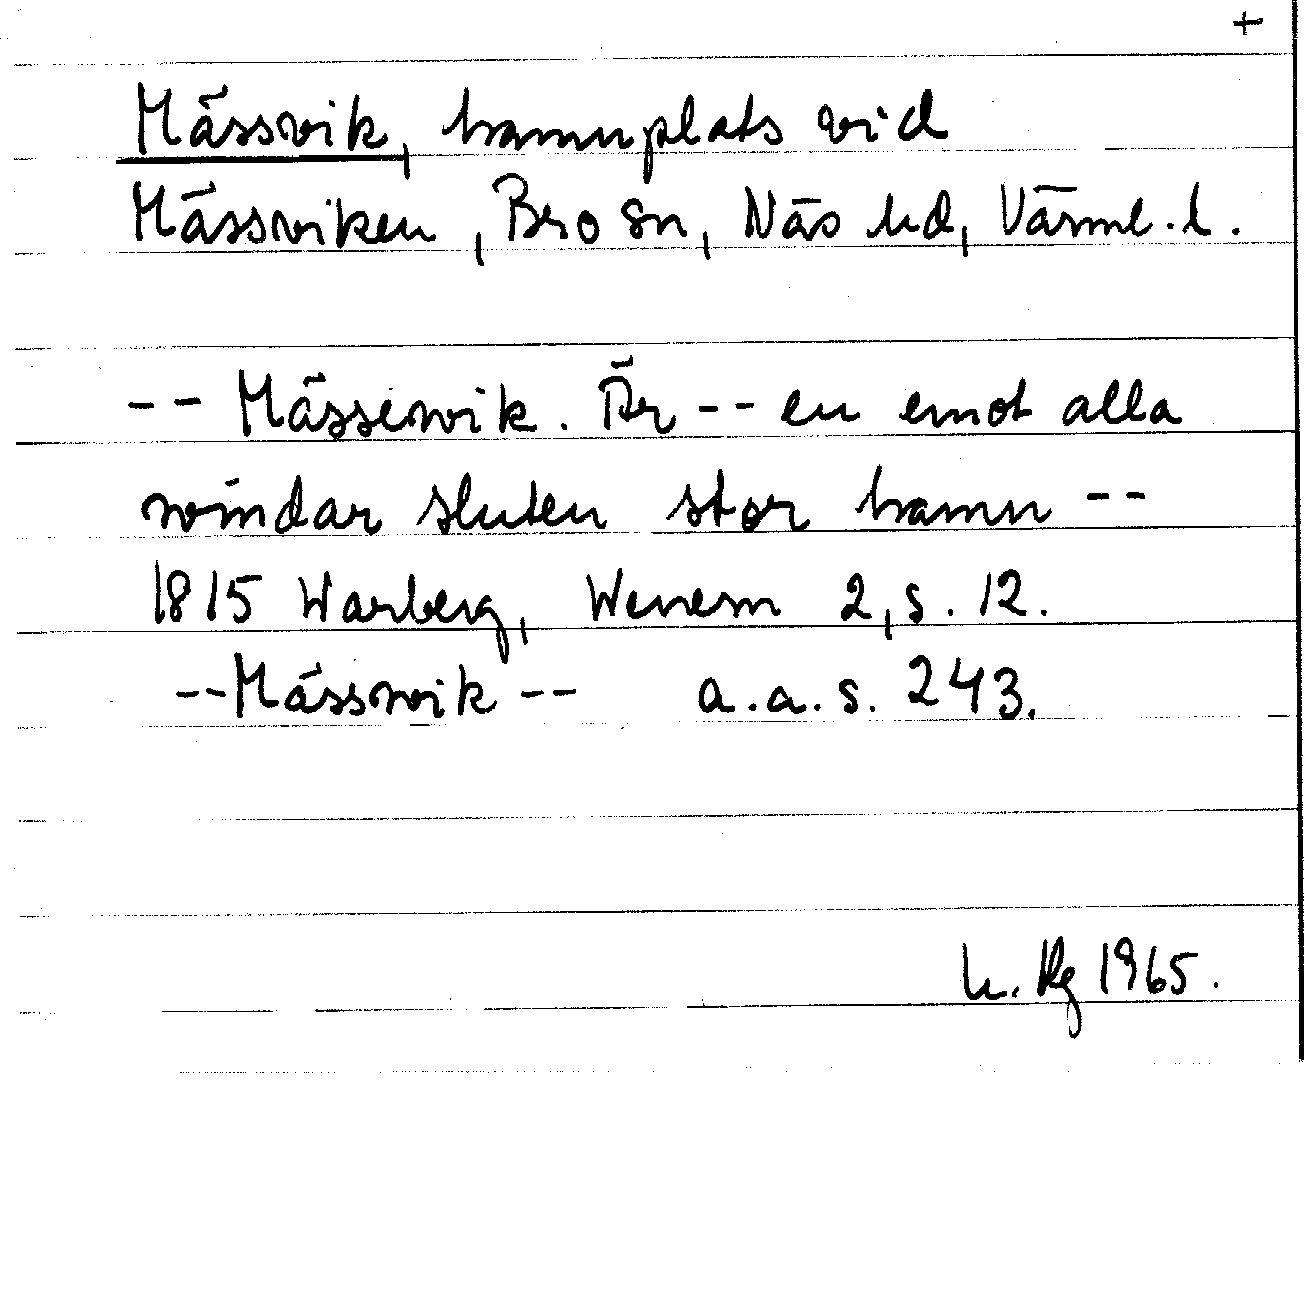 +
Mässvik, hamnplats vid
Mässviken, Bro sn, Näs hd, Värml. l.
-- Mässewik. Är -- en emot alla
windar sluten stor hamn --
1815 Warberg, Wenern 2, s. 12.
--Mässwik -- a.a.s. 243.
1965.